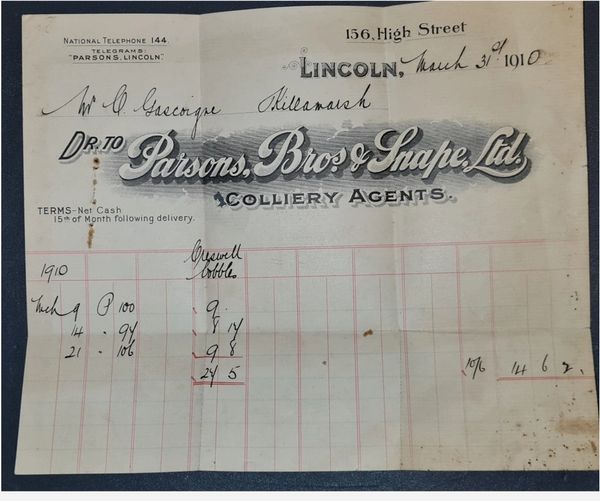 NATIONAL TELEPHONE 144.
TELEGRAMS:
"PARSONS, LINCOLN."
156, High Street
LINCOLN, March 31st 1910
Mr O. Gascoigne Killamarsh
DR. TO Parsons, Bros. & Snape, Ltd.
COLLIERY AGENTS.
TERMS-Net Cash
15th of Month following delivery.
1910 Creswell
Cobbles
Mch 9 P 100 9
14 " 94 8 17
21 " 106 9 8
27 5 10/6 14 6 2